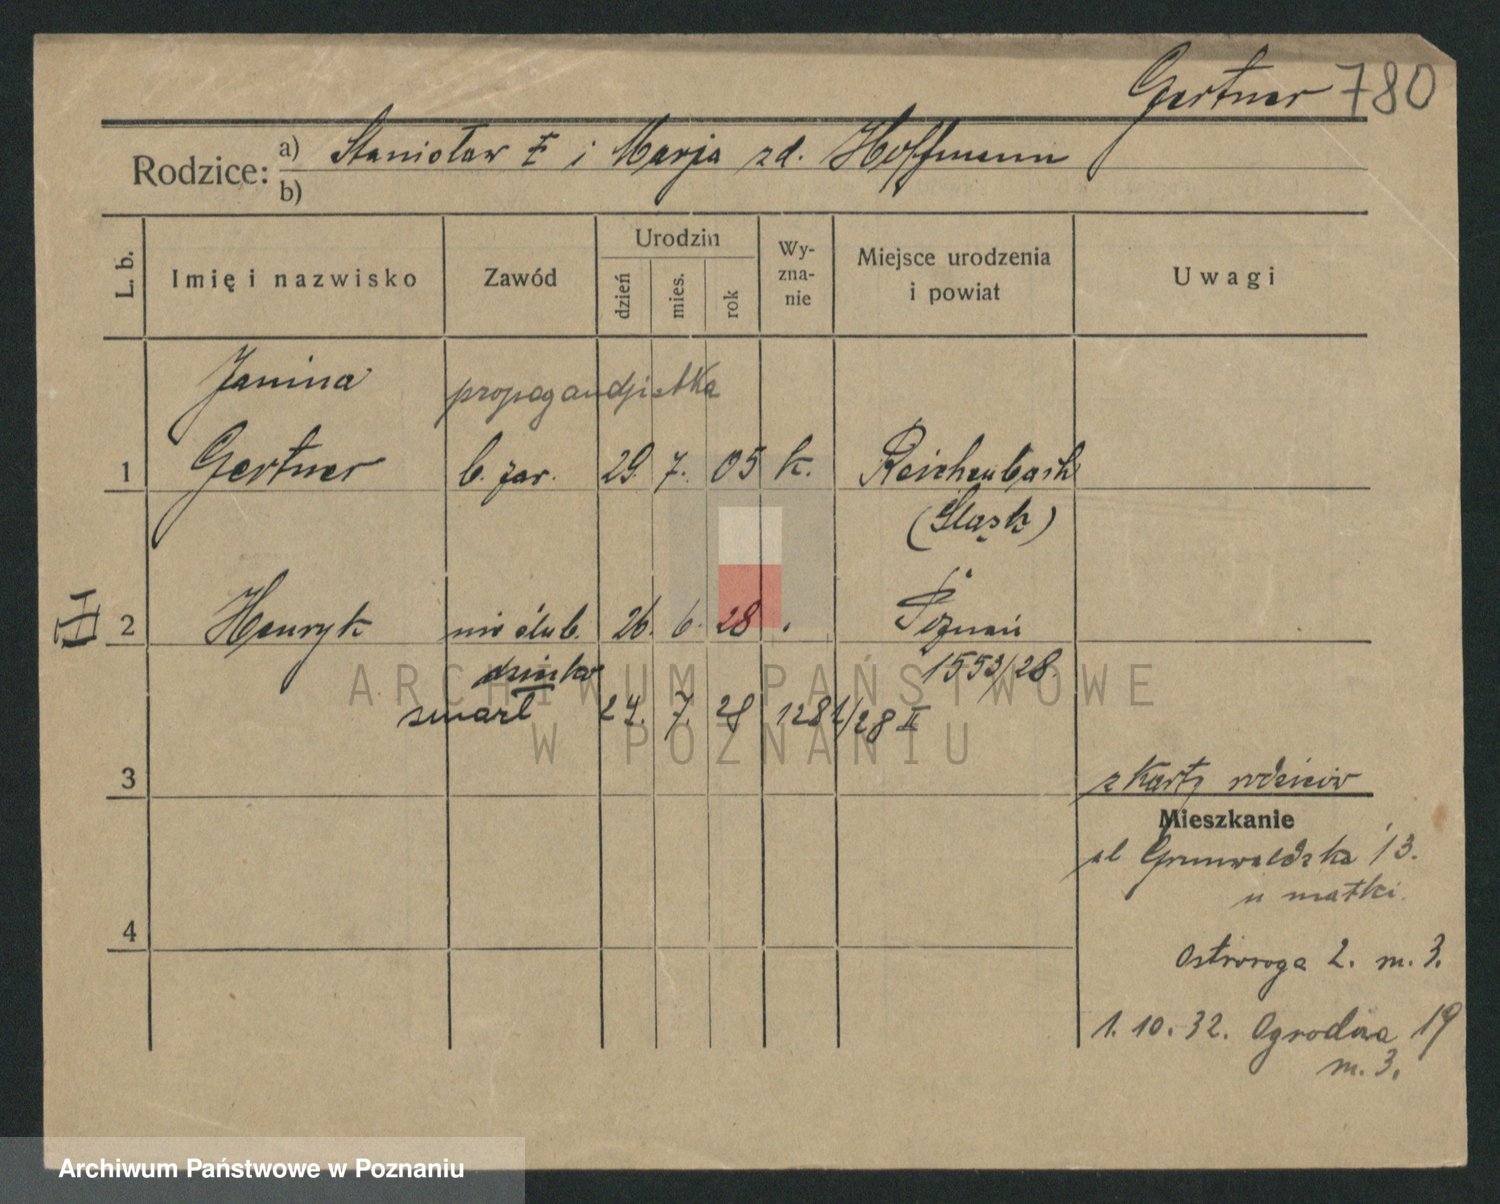 Gertner 780
Rodzice: a) Stanisław i Marja zd. Hoffmann
b)
L. b.
Imię i nazwisko
Zawód
Urodzin
dzień
mies.
rok
Wy-
zna-
nie
Miejsce urodzenia
i powiat
Uwagi
Janina propagandzistka
1 Gertner b. zar. 29. 7. 05 k. Reichenbach
(Śląsk)
II 2 Henryk nie ślub. 26. 6. 28 Poznań
dziecko 1553/28.
zmarł 24. 7. 28 1281/28 II
3 z karty rodziców
Mieszkanie
ul Grunwaldzka 13.
u matki.
4 Ostroroga 2. m. 3.
1. 10. 32. Ogrodowa 19
m. 3.
ARCHIWUM PAŃSTWOWE
W POZNANIU
Archiwum Państwowe w Poznaniu